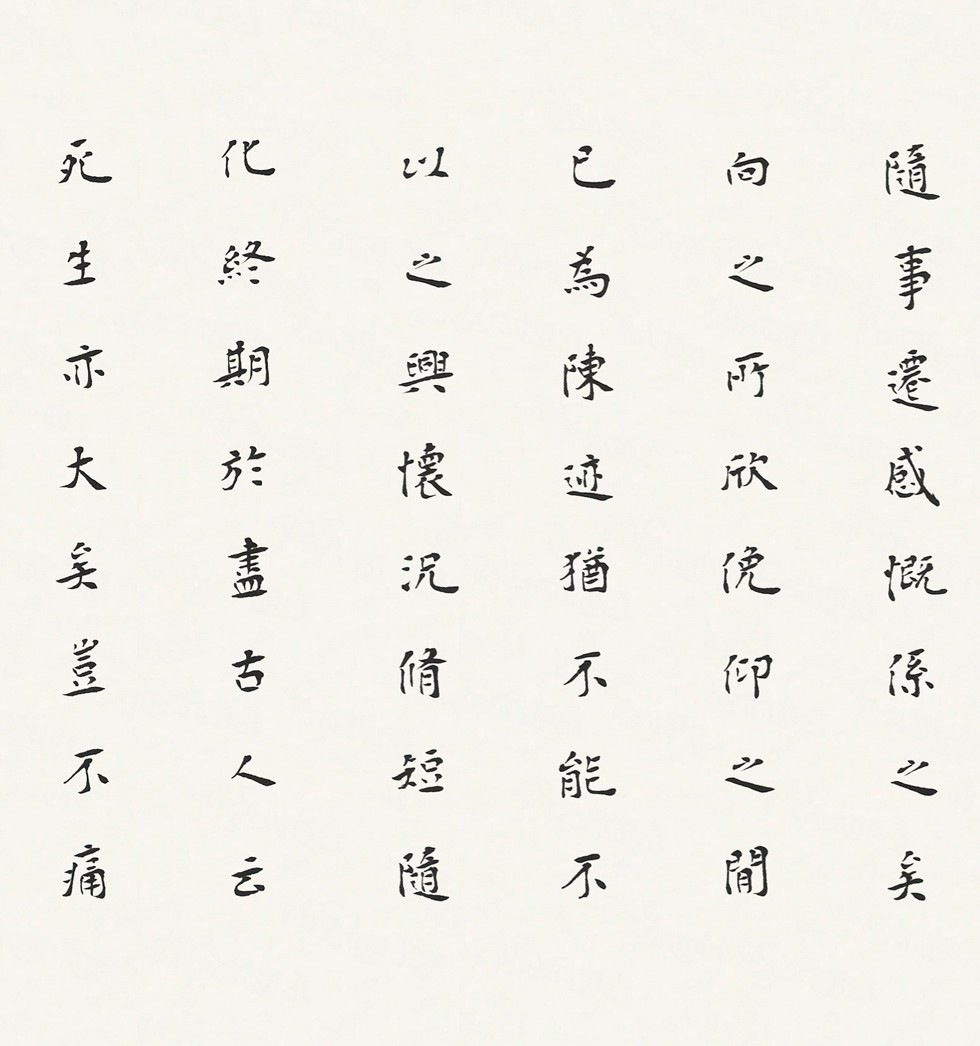 隨事遷感慨係之矣
向之所欣俛仰之閒
已為陳迹猶不能不
以之興懷況脩短隨
化終期於盡古人云
死生亦大矣豈不痛